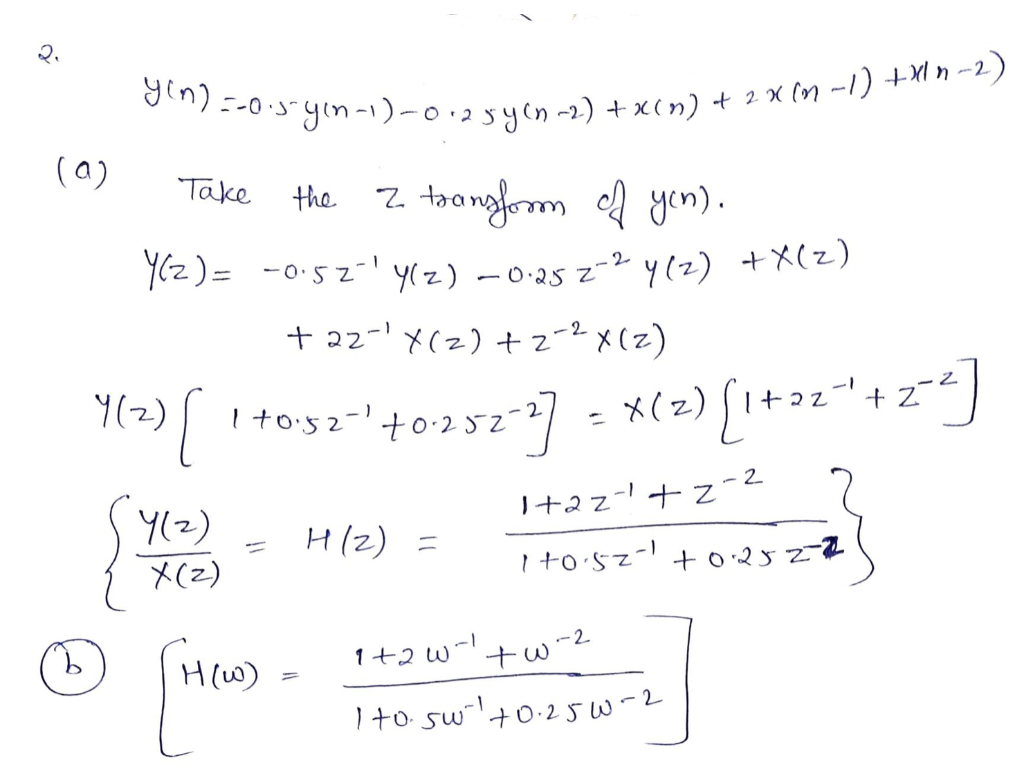 2.
y(n) = -0.5 y(n-1) - 0.25 y(n-2) + x(n) + 2x(n-1) + x(n-2)
(a) Take the z transform of y(n).
Y(z) = -0.5 z⁻¹ Y(z) - 0.25 z⁻² Y(z) + X(z)
+ 2z⁻¹ X(z) + z⁻² X(z)
Y(z) [ 1 + 0.5z⁻¹ + 0.25z⁻² ] = X(z) [ 1 + 2z⁻¹ + z⁻² ]
{ Y(z)/X(z) = H(z) = (1 + 2z⁻¹ + z⁻²)/(1 + 0.5z⁻¹ + 0.25z⁻²) }
(b) [ H(ω) = (1 + 2ω⁻¹ + ω⁻²)/(1 + 0.5ω⁻¹ + 0.25ω⁻²) ]